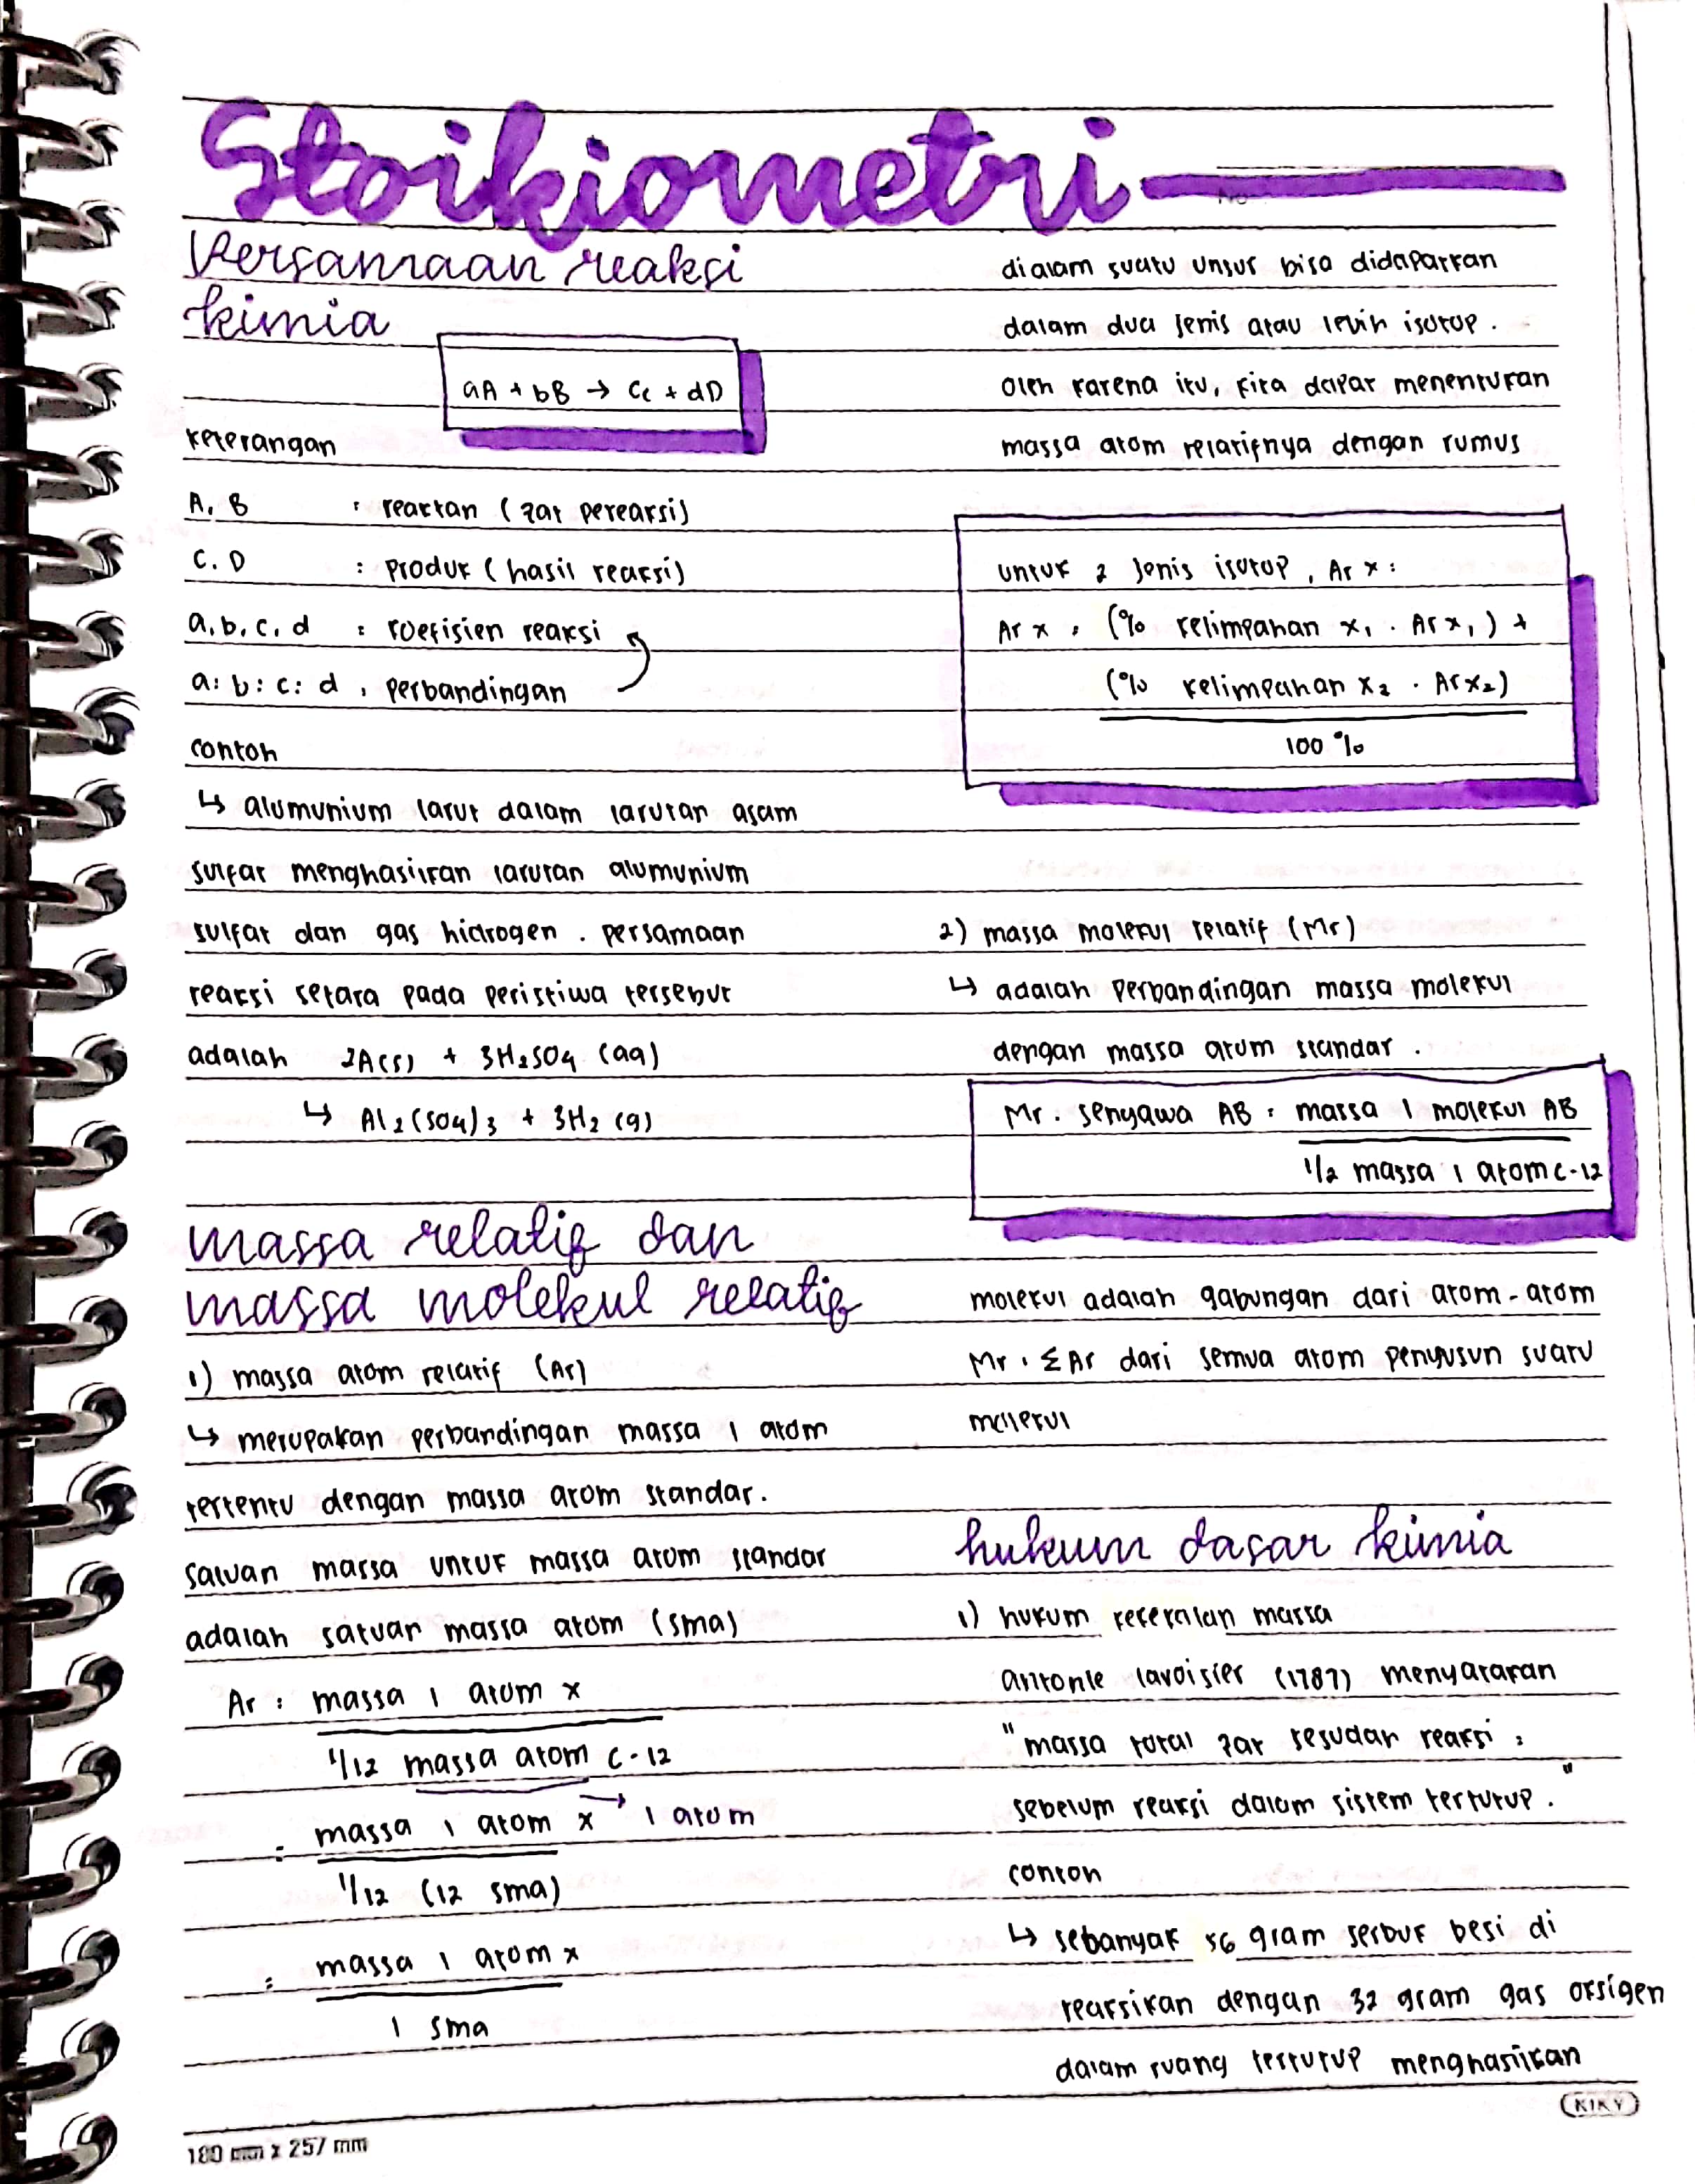 Stoikiometri
No
Persamaan reaksi
kimia
aA + bB → Cc + dD
keterangan
A, B : reaktan (zat pereaksi)
C, D : produk (hasil reaksi)
a, b, c, d : koefisien reaksi
a : b : c : d , perbandingan
contoh
↳ alumunium larut dalam larutan asam
sulfat menghasilkan larutan alumunium
sulfat dan gas hidrogen . persamaan
reaksi setara pada peristiwa tersebut
adalah 2A(s) + 3H₂SO₄ (aq)
↳ Al₂(SO₄)₃ + 3H₂ (g)
massa relatif dan
massa molekul relatif
1) massa atom relatif (Ar)
↳ merupakan perbandingan massa 1 atom
tertentu dengan massa atom standar.
satuan massa untuk massa atom standar
adalah satuan massa atom (sma)
Ar : massa 1 atom x
1/12 massa atom C-12
= massa 1 atom x → 1 atom
1/12 (12 sma)
= massa 1 atom x
1 sma
dialam suatu unsur bisa didapatkan
dalam dua jenis atau lebih isotop .
oleh karena itu, kita dapat menentukan
massa atom relatifnya dengan rumus
untuk 2 jenis isotop, Ar x :
Ar x = (% kelimpahan x₁ . Ar x₁) +
(% kelimpahan x₂ . Ar x₂)
100 %
2) massa molekul relatif (Mr)
↳ adalah perbandingan massa molekul
dengan massa atom standar .
Mr . senyawa AB = massa 1 molekul AB
1/2 massa 1 atom C-12
molekul adalah gabungan dari atom-atom
Mr = Σ Ar dari semua atom penyusun suatu
molekul
hukum dasar kimia
1) hukum kekekalan massa
antonie lavoisier (1787) menyatakan
"massa total zat sesudah reaksi =
sebelum reaksi dalam sistem tertutup."
contoh
↳ sebanyak 56 gram serbuk besi di
reaksikan dengan 32 gram gas oksigen
dalam ruang tertutup menghasilkan
KIKY
180 mm x 257 mm